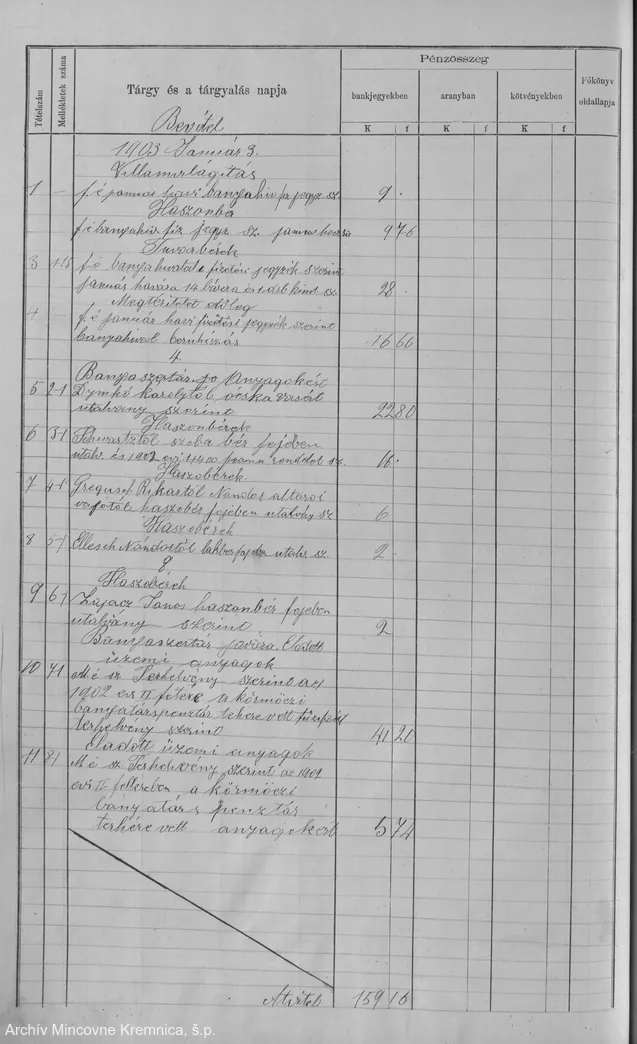 Tételszám
Mellékletek száma
Tárgy és a tárgyalás napja
Pénzösszeg
bankjegyekben
aranyban
kötvényekben
Főkönyv oldallapja
K f K f K f
Bevétel
1903 Január 3.
Villamvilágitás
1 – f. é január havi bányahiv jegyz sz. 9 .
Haszonbé
f é bányahiv fiz jegyz sz. január 9 76
3 f é bányahivatal fizetési jegyzék szerint
január havára 14 és 1 drb kimt sz. 28 .
Megtérített
4 f é január havi fizetési jegyzék szerint
bányahival beruházás 16 66
4
Bányaszertár Anyagokért
5 2-1 Károlytól ócska vasért
utalvány szerint 22 80
Haszonbérek
6 3-1 Schwartztól szoba bér fejében
utalv. és 1902 evi sz. 16 .
Haszobérek
7 4-1 Nándor altaroi
haszobér fejében utalvány sz 6
Haszobérek
8 5-1 Ellesch Nándortól utalv. sz. 2 .
8.
Haszobérek
9 6-1 Zajacz János haszonbér fejében
utalvány szerint 2
Bányaszertár javára Eladott
üzemi anyagok
10 7-1 M é sz Terhelvény szerint az
1902 évi II a körmöczi
bányatárspenztár tehere vett
terhelvény szerint 41 20
Eladott üzemi anyagok
11 8-1 M é sz Terhelvény szerint az 1902
évi II felében a körmöczi
bányatárs penztár
terhére vett anyagokért 5 74
Átvitel 159 16
Archív Mincovne Kremnica, š.p.